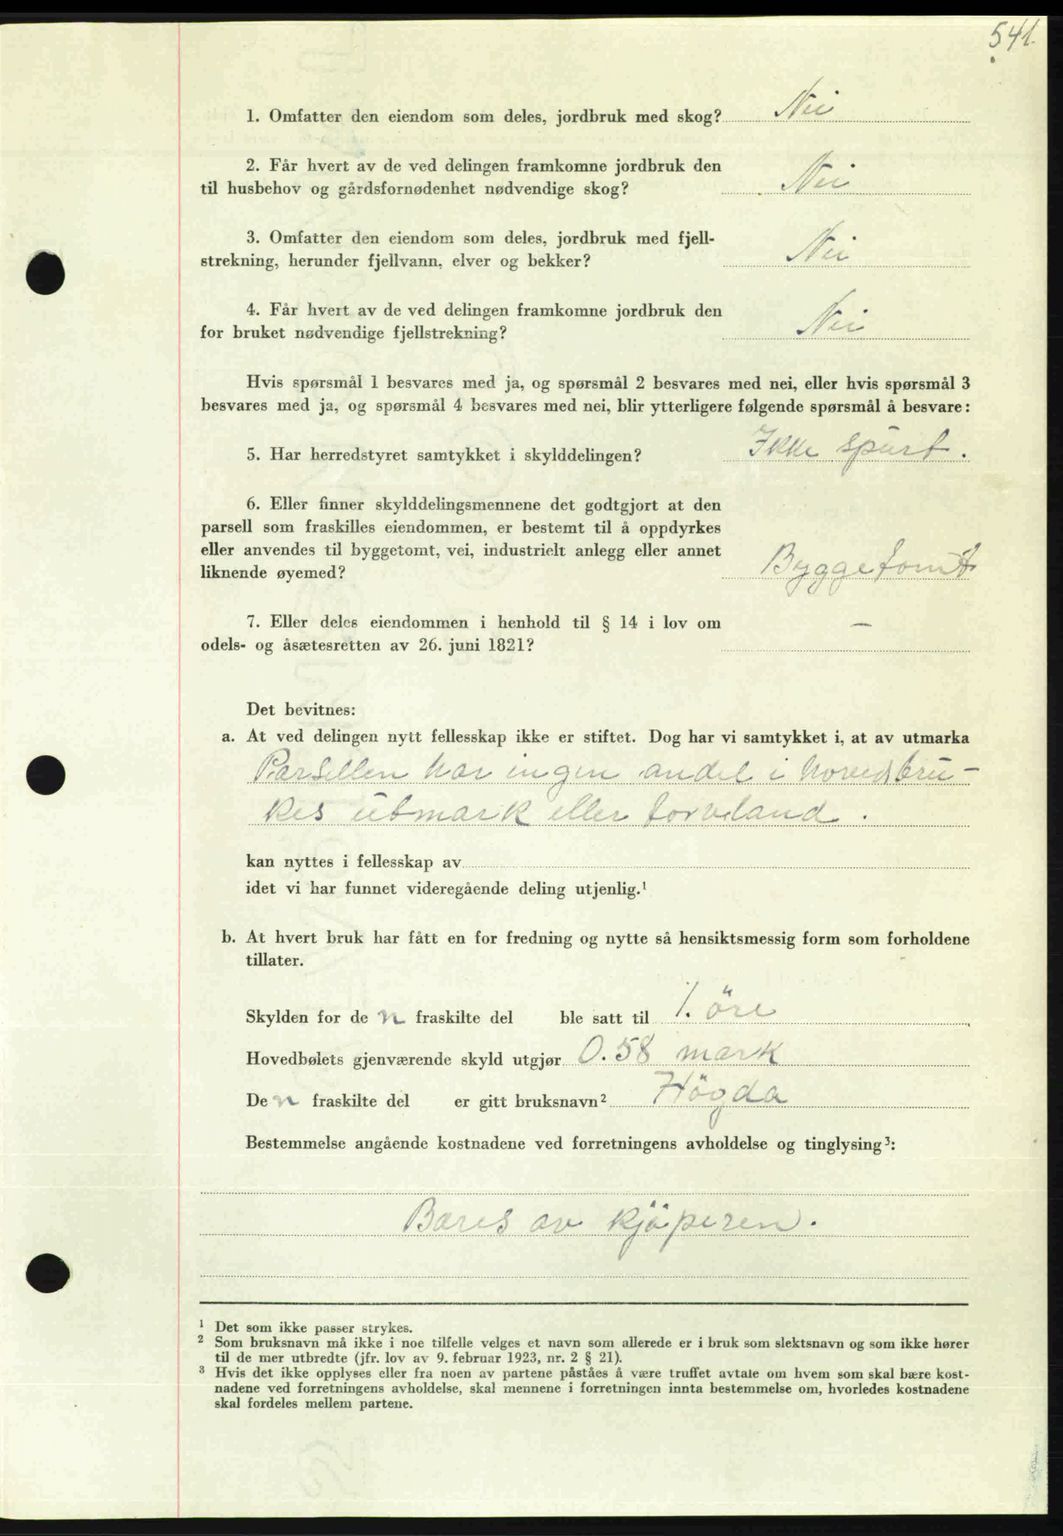 541.
1. Omfatter den eiendom som deles, jordbruk med skog? Nei
2. Får hvert av de ved delingen framkomne jordbruk den
til husbehov og gårdsfornødenhet nødvendige skog? Nei
3. Omfatter den eiendom som deles, jordbruk med fjell-
strekning, herunder fjellvann, elver og bekker? Nei
4. Får hvert av de ved delingen framkomne jordbruk den
for bruket nødvendige fjellstrekning? Nei
Hvis spørsmål 1 besvares med ja, og spørsmål 2 besvares med nei, eller hvis spørsmål 3
besvares med ja, og spørsmål 4 besvares med nei, blir ytterligere følgende spørsmål å besvare:
5. Har herredstyret samtykket i skylddelingen? Ikke spurt.
6. Eller finner skylddelingsmennene det godtgjort at den
parsell som fraskilles eiendommen, er bestemt til å oppdyrkes
eller anvendes til byggetomt, vei, industrielt anlegg eller annet
liknende øyemed? Byggetomt
7. Eller deles eiendommen i henhold til § 14 i lov om
odels- og åsætesretten av 26. juni 1821? —
Det bevitnes:
a. At ved delingen nytt fellesskap ikke er stiftet. Dog har vi samtykket i, at av utmarka
Parsellen har ingen andel i hovedbru-
kes utmark eller torvland.
kan nyttes i fellesskap av
idet vi har funnet videregående deling utjenlig.¹
b. At hvert bruk har fått en for fredning og nytte så hensiktsmessig form som forholdene
tillater.
Skylden for de n fraskilte del ble satt til 1. öre
Hovedbølets gjenværende skyld utgjør 0.58 mark
De n fraskilte del er gitt bruksnavn² Högda
Bestemmelse angående kostnadene ved forretningens avholdelse og tinglysing³:
Bæres av kjöperen.
¹ Det som ikke passer strykes.
² Som bruksnavn må ikke i noe tilfelle velges et navn som allerede er i bruk som slektsnavn og som ikke hører
til de mer utbredte (jfr. lov av 9. februar 1923, nr. 2 § 21).
³ Hvis det ikke opplyses eller fra noen av partene påståes å være truffet avtale om hvem som skal bære kost-
nadene ved forretningens avholdelse, skal mennene i forretningen innta bestemmelse om, hvorledes kostnadene
skal fordeles mellem partene.